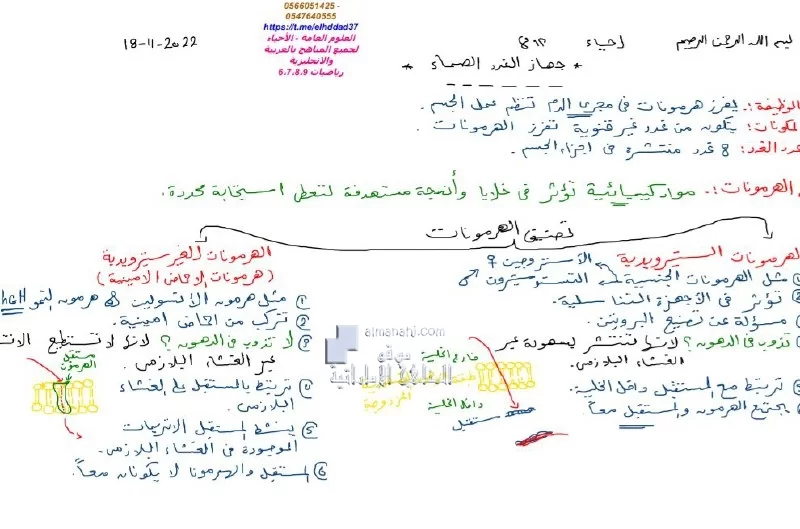 0566051425 -
0547640555
https://t.me/elhddad37
العلوم العامة - الأحياء
لجميع المناهج بالعربية
والانجليزية
رياضيات 6.7.8.9
بسم الله الرحمن الرحيم
أحياء
18-11-2022
* جهاز الغدد الصماء *
الوظيفة: يفرز هرمونات في مجرى الدم تنظم عمل الجسم.
المكونات: يتكون من غدد غير قنوية تفرز الهرمونات.
عدد الغدد: 8 غدد منتشرة في أجزاء الجسم.
الهرمونات: مواد كيميائية تؤثر في خلايا وأنسجة مستهدفة لتعطي استجابة محددة.
تصنيف الهرمونات
الهرمونات الستيرويدية
الأستروجين ♀
مثل الهرمونات الجنسية
التستوستيرون ♂
تؤثر في الأجهزة التناسلية.
مسؤلة عن تصنيع البروتين.
تذوب في الدهون؟ لانها تنتشر بسهولة عبر
الغشاء البلازمي.
ترتبط مع المستقبل داخل الخلية.
يجتمع الهرمون والمستقبل معاً.
خارج الخلية
داخل الخلية
مستقبل
الهرمونات الغير ستيرويدية
(هرمونات الاحماض الامينية)
① مثل هرمون الإنسولين & هرمون النمو hGH
② تتركب من احماض امينية.
③ لا تذوب في الدهون؟ لانها لا تستطيع
عبر الغشاء البلازمي.
④ ترتبط بالمستقبل على الغشاء
البلازمي.
⑤ ينشط المستقبل الانزيمات
الموجودة في الغشاء البلازمي.
⑥ المستقبل والهرمونا لا يكونان معاً.
مستقبل
الهرمون
almanahj.com
موقع
المناهج الإماراتية